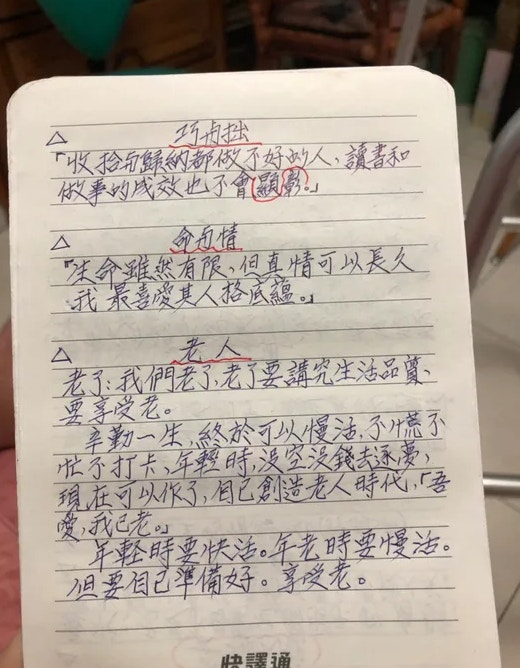 △ 巧与拙
「收拾与歸納都做不好的人、讀書和
做事的成效也不會顯影。」
△ 命与情
「生命雖然有限、但真情可以長久
我最喜愛其人格底蘊。」
△ 老人
老了：我們老了、老了要講究生活品質、
要享受老。
辛勤一生，終於可以慢活，不慌不
忙不打卡、年輕時，沒空沒錢去逐夢，
現在可以作了，自己創造老人時代，「吾
愛，我已老。」
年輕時要快活。年老時要慢活。
但要自己準備好。享受老。
快譯通